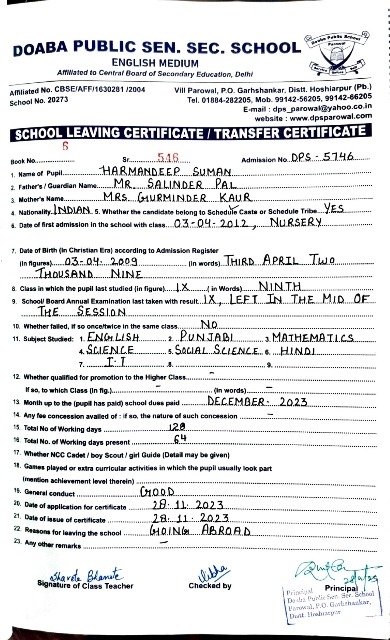 DOABA PUBLIC SEN. SEC. SCHOOL
ENGLISH MEDIUM
Affiliated to Central Board of Secondary Education, Delhi
Doaba Public School
Parowal
Affiliated No. CBSE/AFF/1630281 /2004
School No. 20273
Vill Parowal, P.O. Garhshankar, Distt. Hoshiarpur (Pb.)
Tel. 01884-282205, Mob. 99142-56205, 99142-66205
E-mail : dps_parowal@yahoo.co.in
website : www.dpsparowal.com
SCHOOL LEAVING CERTIFICATE / TRANSFER CERTIFICATE
Book No. 6 Sr. 546 Admission No. DPS - 5746
1. Name of Pupil HARMANDEEP SUMAN
2. Father's / Guardian Name MR. SALINDER PAL
3. Mother's Name MRS GURMINDER KAUR
4. Nationality INDIAN 5. Whether the candidate belong to Schedule Caste or Schedule Tribe YES
6. Date of first admission in the school with class 03-04-2012, NURSERY
7. Date of Birth (In Christian Era) according to Admission Register
(in figures) 03-04-2009 (in words) THIRD APRIL TWO
THOUSAND NINE
8. Class in which the pupil last studied (in figure) IX (in Words) NINTH
9. School/ Board Annual Examination last taken with result IX, LEFT IN THE MID OF
THE SESSION
10. Whether failed, if so once/twice in the same class NO
11. Subject Studied: 1. ENGLISH 2. PUNJABI 3. MATHEMATICS
4. SCIENCE 5. SOCIAL SCIENCE 6. HINDI
7. I.T 8. 9.
12. Whether qualified for promotion to the Higher Class -
If so, to which Class (in fig.) - (in Words) -
13. Month up to the (pupil has paid) school dues paid DECEMBER- 2023
14. Any fee concession availed of : if so, the nature of such concession -
15. Total No of Working days 128
16. Total No. of Working days present 64
17. Whether NCC Cadet / boy Scout / girl Guide (Detail may be given)
18. Games played or extra curricular activities in which the pupil usually look part
(mention achievement level therein)
19. General conduct GOOD
20. Date of application for certificate 28.11.2023
21. Date of issue of certificate 28.11.2023
22. Reasons for leaving the school GOING ABROAD
23. Any other remarks -
Signature of Class Teacher
Checked by
Principal
Principal
Doaba Public Sen. Sec. School
Parowal, P.O. Garhshankar,
Distt. Hoshiarpur